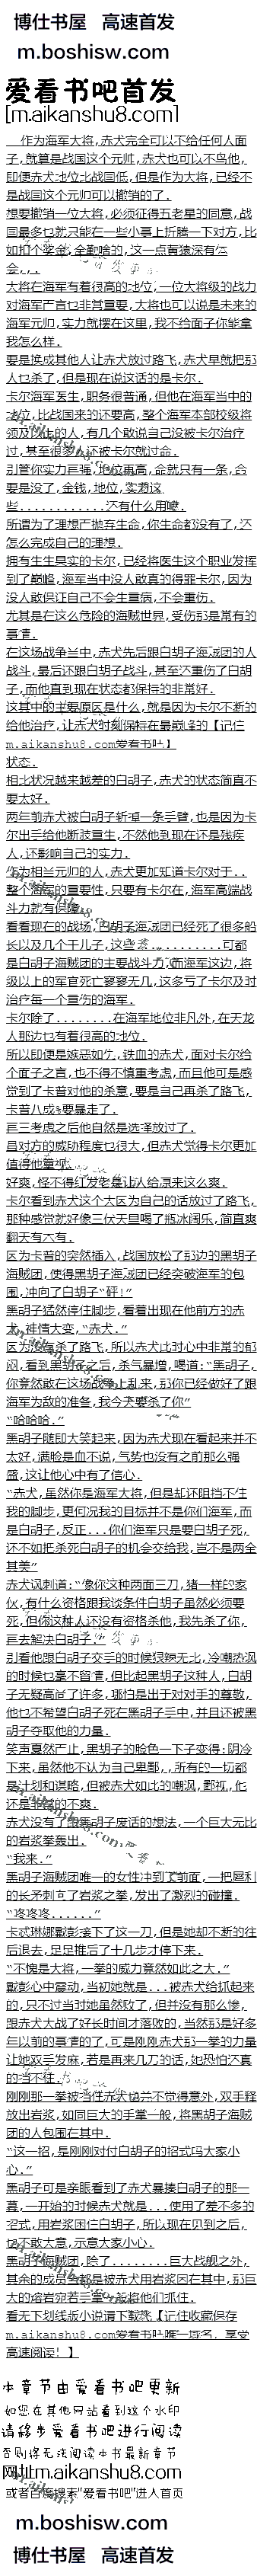 博仕书屋 高速首发
m.boshisw.com
爱看书吧首发
[m.aikanshu8.com]
作为海军大将,赤犬完全可以不给任何人面
子,就算是战国这个元帅,赤犬也可以不鸟他,
即便赤犬地位比战国低,但是作为大将,已经不
是战国这个元帅可以撤销的了.
想要撤销一位大将,必须征得五老星的同意,战
国最多也就只能在一些小事上折腾一下对方,比
如扣个奖金,全勤啥的,这一点黄猿深有体
会,,.
大将在海军有着很高的地位,一位大将级的战力
对海军产言也非常重要,大将也可以说是未来的
海军元帅,实力就摆在这里,我不给面子你能拿
我怎么样.
要是换成其他人让赤犬放过路飞,赤犬早就把那
人也杀了,但是现在说这话的是卡尔.
卡尔海军医生,职务很普通,但他在海军当中的
地位,比战国来的还要高,整个海军本部校级将
领及以上的人,有几个敢说自己没被卡尔治疗
过,甚至很多人还被卡尔救过命.
引管你实力再强,地位再高,命就只有一条,命
要是没了,金钱,地位,实力这
些............还有什么用呢.
所谓为了理想产抛弃生命,你生命都没有了,还
怎么完成自己的理想.
拥有生生果实的卡尔,已经将医生这个职业发挥
到了巅峰,海军当中没人敢真的得罪卡尔,因为
没人敢保证自己不会生重病,不会重伤.
尤其是在这么危险的海贼世界,受伤那是常有的
事情.
在这场战争当中,赤犬先后跟白胡子海贼团的人
战斗,最后还跟白胡子战斗,甚至还重伤了白胡
子,而他直到现在状态都保持的非常好.
这其中的主要原因是什么,就是因为卡尔不断的
给他治疗,让赤犬时刻保持在最巅峰的【记住
m.aikanshu8.com爱看书吧】
状态.
相比状况越来越差的白胡子,赤犬的状态简直不
要太好.
两年前赤犬被白胡子斩掉一条手臂,也是因为卡
尔出手给他断肢重生,不然他到现在还是残疾
人,还影响自己的实力.
作为相当元帅的人,赤犬更加知道卡尔对于..
整个海军的重要性,只要有卡尔在,海军高端战
斗力就有保障.
看看现在的战场,白胡子海贼团已经死了很多船
长以及几个干儿子,这些...........可都
是白胡子海贼团的主要战斗力,而海军这边,将
级以上的军官死亡寥寥无几,这多亏了卡尔及时
治疗每一个重伤的海军.
卡尔除了........在海军地位非凡外,在天龙
人那边也有着很高的地位.
所以即便是嫉恶如仇,铁血的赤犬,面对卡尔给
个面子之言,也不得不慎重考虑,而且他可是感
觉到了卡普对他的杀意,要是自己再杀了路飞,
卡普八成要暴走了.
再三考虑之后他自然是选择放过了.
虽对方的威胁程度也很大,但赤犬觉得卡尔更加
值得他重视.
好爽,怪不得红发老是让人给原来这么爽.
卡尔看到赤犬这个大区为自己的话放过了路飞,
那种感觉就好像三伏天里喝了瓶冰阔乐,简直爽
翻天有木有.
区为卡普的突然插入,战国放松了那边的黑胡子
海贼团,使得黑胡子海贼团已经突破海军的包
围,冲向了白胡子“砰!”
黑胡子猛然停住脚步,看着出现在他前方的赤
犬,神情大变,“赤犬.”
区为没有杀了路飞,所以赤犬此时心中非常的郁
闷,看到黑胡子之后,杀气暴增,喝道:“黑胡子,
你竟然敢在这场战争上乱来,那你已经做好了跟
海军为敌的准备,我今天要杀了你”
“哈哈哈.”
黑胡子随即大笑起来,因为赤犬现在看起来并不
太好,满脸是血不说,气势也没有之前那么强
盛,这让他心中有了信心.
“赤犬,虽然你是海军大将,但是却还阻挡不住
我的脚步,更何况我的目标并不是你们海军,而
是白胡子,反正...你们海军只是要白胡子死,
还不如把杀死白胡子的机会交给我,岂不是两全
其美”
赤犬讽刺道:“像你这种两面三刀,猪一样的家
伙,有什么资格跟我谈条件白胡子虽然必须要
死,但你这种人还没有资格杀他,我先杀了你,
再去解决白胡子.”
引看他跟白胡子交手的时候狠辣无比,冷嘲热讽
的时候也毫不留情,但比起黑胡子这种人,白胡
子无疑高尚了许多,哪怕是出于对对手的尊敬,
他也不希望白胡子死在黑胡子手中,并且还被黑
胡子夺取他的力量.
笑声戛然产止,黑胡子的脸色一下子变得:阴冷
下来,虽然他不认为自己卑鄙,,所有的一切都
是计划和谋略,但被赤犬如此的嘲讽,鄙视,他
还是非常的不爽.
赤犬没有了跟黑胡子废话的想法,一个巨大无比
的岩浆拳轰出.
“我来.”
黑胡子海贼团唯一的女性冲到了前面,一把犀利
的长矛刺向了岩浆之拳,发出了激烈的碰撞.
“咚咚咚......”
卡忒琳娜戴彭接下了这一刀,但是她却不断的往
后退去,足足推后了十几步才停下来.
“不愧是大将,一拳的威力竟然如此之大.”
戴彭心中震动,当初她就是...被赤犬给抓起来
的,只不过当时她虽然败了,但并没有那么惨,
跟赤犬大战了好长时间才落败的,当然那是好多
年以前的事情的了,可是刚刚赤犬那一拳的力量
让她双手发麻,若是再来几刀的话,她恐怕还真
的挡不住.
刚刚那一拳被当住赤犬也并不觉得意外,双手释
放出岩浆,如同巨大的手掌一般,将黑胡子海贼
团的人包围在其中.
“这一招,是刚刚对付白胡子的招式吗大家小
心.”
黑胡子可是亲眼看到了赤犬暴揍白胡子的那一
幕,一开始的时候赤犬就是...使用了差不多的
招式,用岩浆困住白胡子,所以现在见到之后,
也不敢大意,示意大家小心.
黑胡子海贼团,除了........巨大战舰之外,
其余的成员全部是被赤犬用岩浆困在其中,那巨
大的熔岩宛若手掌一般将他们抓住.
看无下划线版小说请下载瓢【记住收藏保存
m.aikanshu8.com爱看书吧唯一域名,享受
高速阅读!】
本章节由爱看书吧更新
如您在其他网站看到这个水印
请移步爱看书吧进行阅读
否则将无法阅读本书最新章节
网址m.aikanshu8.com
或者百度搜索"爱看书吧"进入首页
m.boshisw.com
博仕书屋 高速首发